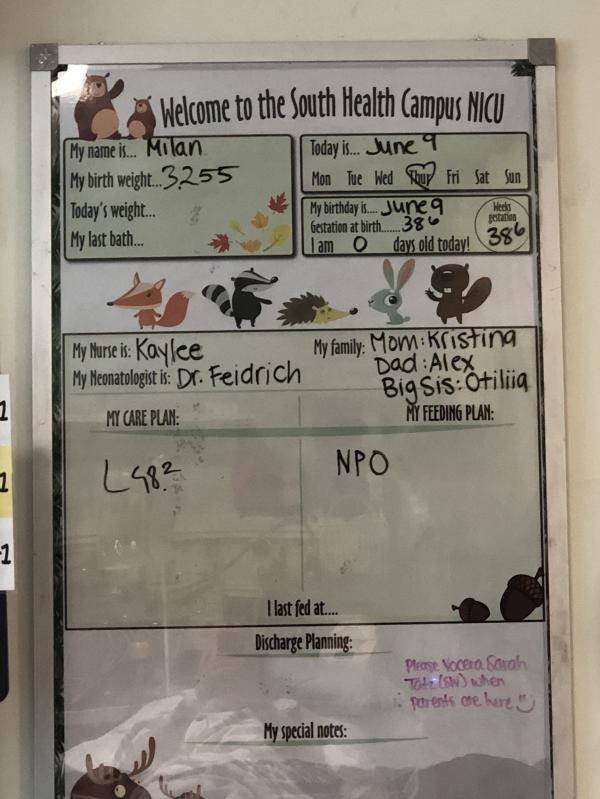 Welcome to the South Health Campus NICU
My name is... Milan
My birth weight...3255
Today's weight...
My last bath...
Today is... June 9
Mon Tue Wed Thur Fri Sat Sun
My birthday is.... June 9
Gestation at birth....... 38⁶
I am 0 days old today!
Weeks gestation
38⁶
My Nurse is: Kaylee
My Neonatologist is: Dr. Feidrich
My family: Mom: Kristina
Dad: Alex
Big Sis: Otiliia
MY CARE PLAN:
L 48.²
MY FEEDING PLAN:
NPO
I last fed at....
Discharge Planning:
Please Vocera Sarah
(SW) when
parents are here.
My special notes:
1
1
1